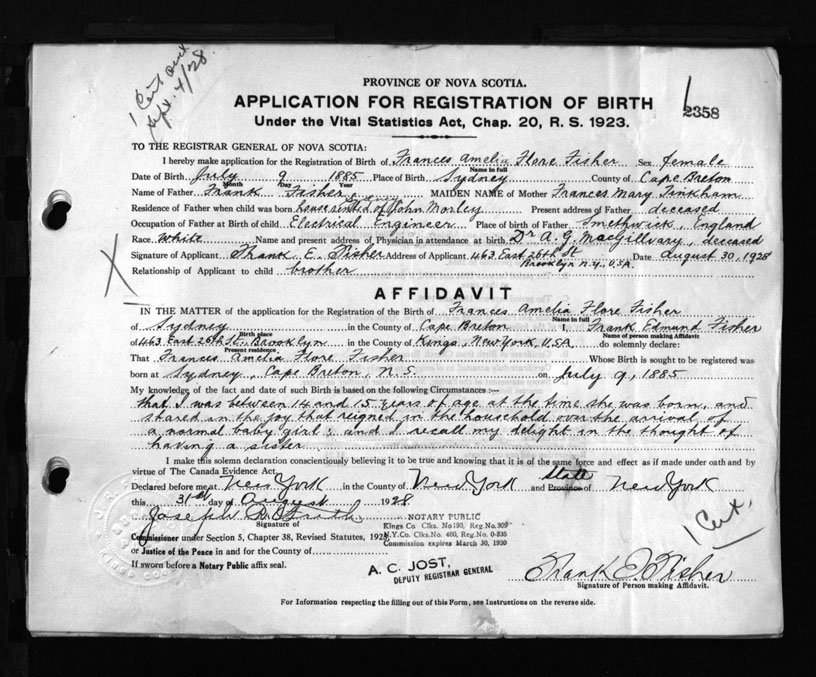 1 Cert out
Sept. 4/28
PROVINCE OF NOVA SCOTIA.
APPLICATION FOR REGISTRATION OF BIRTH
2358
Under the Vital Statistics Act, Chap. 20, R. S. 1923.
TO THE REGISTRAR GENERAL OF NOVA SCOTIA:
I hereby make application for the Registration of Birth of Frances Amelia Flore Fisher Sex female
Name in full
Date of Birth July 9 1885 Place of Birth Sydney County of Cape Breton
Month Day Year
Name of Father Frank Fisher MAIDEN NAME of Mother Frances Mary Tinkham
Residence of Father when child was born house rented of John Morley Present address of Father deceased
Occupation of Father at Birth of child Electrical Engineer Place of birth of Father Smethwick, England
Race White Name and present address of Physician in attendance at birth Dr A. G. MacGillvary, deceased
Signature of Applicant Frank E. Fisher Address of Applicant 463 East 26th St Date August 30, 1928
Brooklyn N.Y., U.S.A.
Relationship of Applicant to child brother
AFFIDAVIT
IN THE MATTER of the application for Registration of the Birth of Frances Amelia Flore Fisher
Name in full
of Sydney in the County of Cape Breton I, Frank Edmund Fisher
Birth place Name of person making Affidavit
of 463 East 26th St., Brooklyn in the County of Kings, New York, U.S.A. do solemnly declare:
Present residence
That Frances Amelia Flore Fisher Whose Birth is sought to be registered was
born at Sydney, Cape Breton, N.S. on July 9, 1885
My knowledge of the fact and date of such Birth is based on the following Circumstances :—
that I was between 14 and 15 years of age at the time she was born, and
shared in the joy that reigned in the household over the arrival of
a normal baby girl; and I recall my delight in the thought of
having a sister
I make this solemn declaration conscientiously believing it to be true and knowing that it is of the same force and effect as if made under oath and by
virtue of The Canada Evidence Act.
State
Declared before me at New York in the County of New York and Province of New York
this 31st day of August 1928
Joseph
Signature of
NOTARY PUBLIC
Kings Co Clks. No 190, Reg. No. 309
Commissioner under Section 5, Chapter 38, Revised Statutes, 1923,
N.Y. Co. Clks. No. 460, Reg. No 0-335
Commission expires March 30, 1930
or Justice of the Peace in and for the County of
If sworn before a Notary Public affix seal.
1 Cert.
A. C. JOST,
DEPUTY REGISTRAR GENERAL
Frank E Fisher
Signature of Person making Affidavit.
For Information respecting the filling out of this Form, see Instructions on the reverse side.